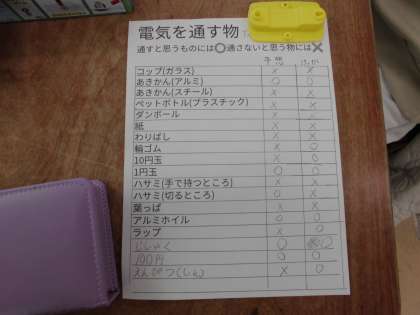 電気を通す物
通すと思うものには○通さないと思う物には×
予想 けっか
コップ(ガラス) × ×
あきかん(アルミ) ○ ○
あきかん(スチール) × ×
ペットボトル(プラスチック) × ×
ダンボール × ×
紙 × ×
わりばし × ×
輪ゴム × ○
10円玉 × ○
1円玉 ○ ○
ハサミ(手で持つところ) × ×
ハサミ(切るところ) ○ ×
葉っぱ × ×
アルミホイル ○ ○
ラップ × ○
じしゃく ○ ○
100円 ○ ○
えんぴつ(しん) × ○